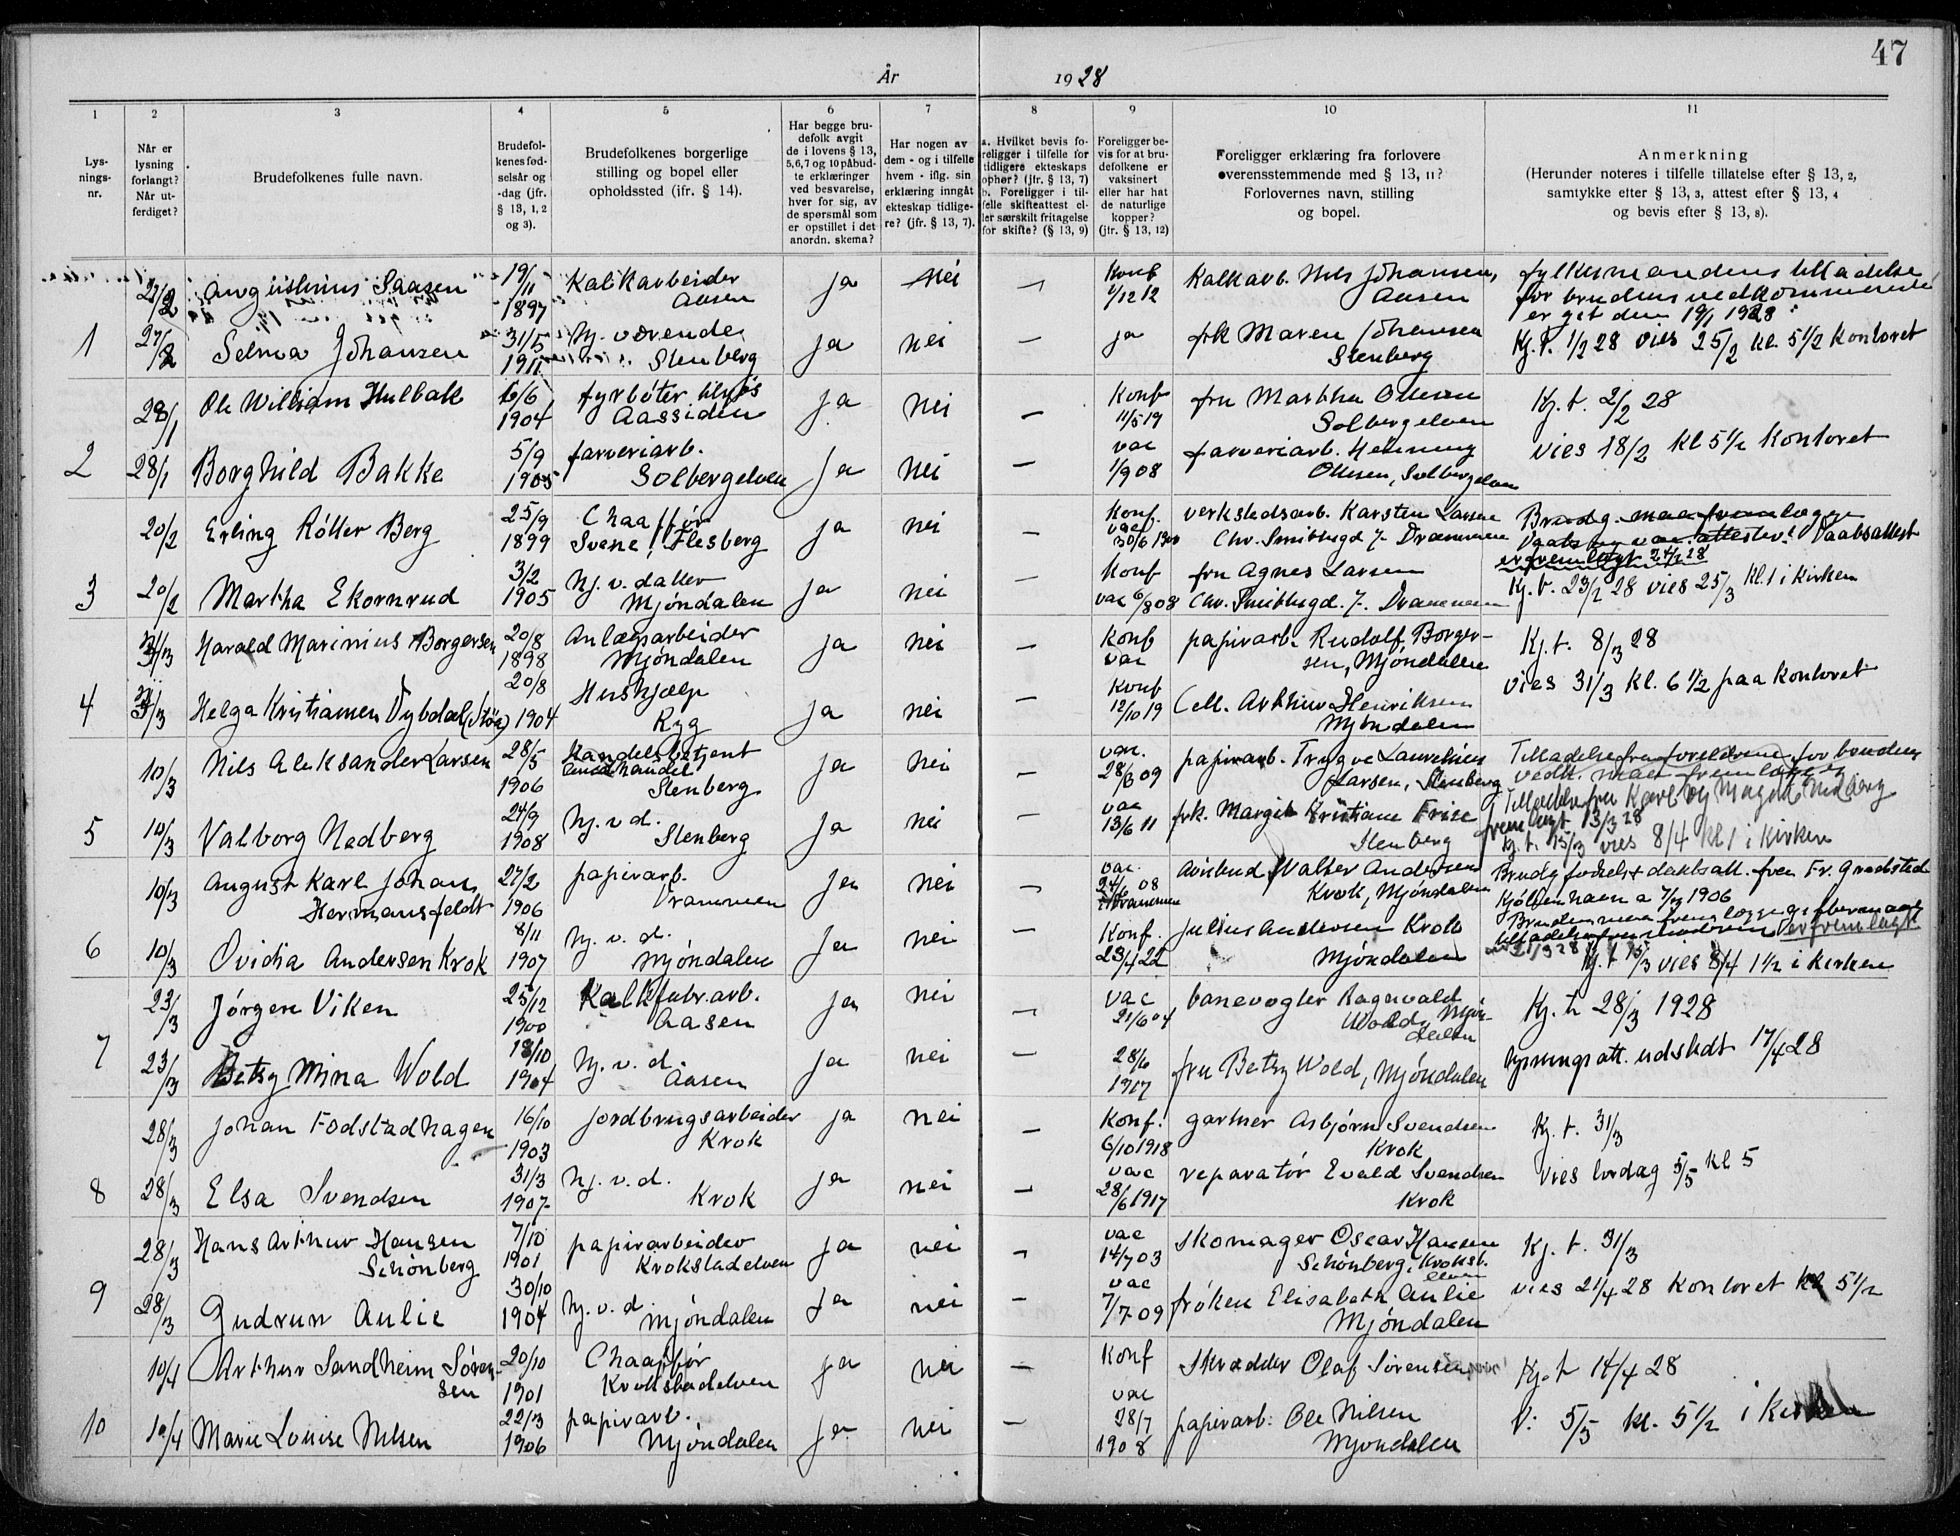 47
År 1928
1 2 3 4 5 6 7 8 9 10 11
Lys-
nings-
nr.
Når er
lysning
forlangt?
Når ut-
ferdiget?
Brudefolkenes fulle navn.
Brudefol-
kenes fød-
selsår og
-dag (jfr.
§ 13, 1, 2
og 3).
Brudefolkenes borgerlige
stilling og bopel eller
opholdssted (ifr. § 14).
Har begge bru-
defolk avgit
de i lovens § 13,
5,6,7 og 10 påbud-
te erklæringer
ved besvarelse,
hver for sig, av
de spørsmål som
er opstillet i det
anordn. skema?
Har nogen av
dem - og i tilfelle
hvem - iflg. sin
erklæring inngått
ekteskap tidlige-
re? (jfr. § 13, 7).
a. Hvilket bevis fo-
religger i tilfelle for
tidligere ekteskaps
ophør? (jfr. § 13, 7)
b. Foreligger i til-
felle skifteattest el-
ler særskilt fritagelse
for skifte? (§ 13, 9)
Foreligger be-
vis for at bru-
defolkene er
vaksinert
eller har hat
de naturlige
kopper?
(jfr. § 13, 12)
Foreligger erklæring fra forlovere
overensstemmende med § 13, 11?
Forlovernes navn, stilling
og bopel.
Anmerkning
(Herunder noteres i tilfelle tillatelse efter § 13, 2,
samtykke etter § 13, 3, attest efter § 13, 4
og bevis efter § 13, 8).
27/2 Saasen 19/11 1897 Kalkarbeider Aasen ja nei — Konf 1/12 12 Kalkarb. Nils Johansen, Aasen
fylkesmandens tilladelse
for brudens vedkommende
er get den 19/1 1928
1 27/2 Selma Johansen 31/5 1911 Hj. værende Stenberg ja nei — ja frk Maren Johansen Stenberg
Kj. t. 1/2 28 vies 25/2 kl. 5 1/2 Kontoret
28/1 Ole William Hulbak 6/6 1904 fyrbøter Aassiden ja nei — Konf 11/5 19 fru Martha Olsen Solbergelven
Kj. t. 2/2 28
2 28/1 Borghild Bakke 5/9 1905 farveriarb. Solbergelven ja nei — vac 1/9 08 farveriarb. Henning Olsen, Solbergelven
vies 18/2 kl 5 1/2 Kontoret
20/2 Erling Kølter Berg 25/9 1899 Chaaffør Svene, Flesberg ja nei — Konf. vac 30/6 1900 verkstedsarb. Karsten Larsen Chr. Smithsgd 7. Drammen
Brudg. maa fremlægge
Daabs og vac. attester. Daabsattest
er fremlagt 24/2 28
3 20/2 Martha Ekornrud 3/2 1905 Hj. v. datter Mjøndalen ja nei — Konf vac 6/8 08 fru Agnes Larsen Chr. Smithsgd. 7. Drammen
Kj. t. 23/2 28 vies 25/3 kl. 1 i Kirken
Harald Marinius Borgersen 20/8 1898 Anlægsarbeider Mjøndalen ja nei — Konf vac papirarb. Rudolf Borger-
sen, Mjøndalen
Kj. t. 8/3 28
4 Helga Kristiansen Dybdal 20/8 1904 Hushjælp Ryg ja nei — Konf 12/10 19 Arthur Henriksen Mjøndalen
vies 31/3 kl. 6 1/2 paa Kontoret
10/3 Nils Aleksander Larsen 28/5 1906 Handelsbetjent Stenberg ja nei — vac. 28/6 09 papirarb. Trygve Larsen, Stenberg
Tilladelse fra forældrene for bruden
vedk. maa fremlægges
5 10/3 Valborg Nedberg 24/9 1908 Hj. v d. Stenberg ja nei — vac 13/6 11 frk. Margit Kristiane Friis Stenberg
Tilladelse fra Karl og Nedberg
fremlagt 13/3 28
Kj. t. 15/3 vies 8/4 kl 1 i Kirken
10/3 August Karl Johan Hermansfeldt 27/2 1906 papirarb. Drammen ja nei — vac. 24/6 08 Drammen Avisbud Walter Andersen Krok, Mjøndalen
Brudg fødsels + daabsatt. fra Fr. Gradsted
Kjøbenhavn a 7/12 1906
6 10/3 Ovidia Andersen Krok 8/11 1907 Hj. v. d. Mjøndalen ja nei — Konf. 23/4 22 Julius Andersen Krok Mjøndalen
Kj. t 15/3 vies 8/4 1 1/2 i Kirken
23/3 Jørgen Viken 25/12 1900 Kalkfabr.arb. Aasen ja nei — vac 21/6 04 banevogter Ragnvald Wold, Mjøn-
dalen
Kj. t. 28/3 1928
7 23/3 Betsy Mina Wold 18/10 1904 Hj. v. d. Aasen ja nei — 28/6 1917 fru Betsy Wold, Mjøndalen
lysningsatt. udstedt 17/4 28
28/3 Johan Fodstadhagen 16/10 1903 jordbrugsarbeider Krok ja nei — Konf. 6/10 1918 gartner Asbjørn Svendsen Krok
Kj. t. 31/3
8 28/3 Elsa Svendsen 31/3 1907 Hj. v. d. Krok ja nei — vac 28/6 1917 reparatør Evald Svendsen Krok
Vies lørdag 5/5 kl 5
28/3 Hans Arthur Hansen Schønberg 7/10 1901 papirarbeider Krokstadelven ja nei — vac 14/7 03 Skomager Oscar Hansen Schønberg, Krokst.
elven
Kj. t. 31/3
9 28/3 Gudrun Aulie 30/10 1904 Hj. v. d. Mjøndalen ja nei — vac 7/7-09 frøken Elisabeth Aulie Mjøndalen
vies 21/4 28 Kontoret kl 5 1/2
10/4 Arthur Sandheim Søren-
sen 20/10 1901 Chaaffør Krokstadelven ja nei — Konf Skrædder Olaf Sørensen
Kj. t 14/4 28
10 10/4 Marie Louise Nilsen 22/3 1906 papirarb. Mjøndalen ja nei — vac 28/7 1908 papirarb. Ole Nilsen Mjøndalen
V: 5/5 kl. 5 1/2 i Kirken